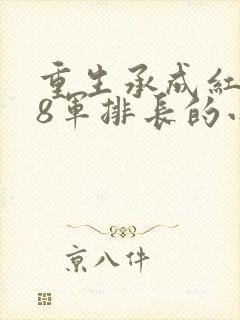 重生承成紅
8軍排長的
京八件